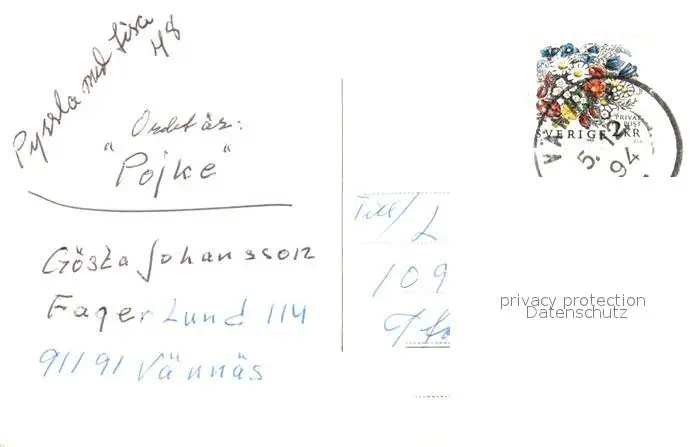 Pyssla med Lisa
48
Ordet är:
"Pojke"
Gösta Johansson
Fagerlund 114
91191 Vännäs
Till/ L
109
PRIVAT
POST
SVERIGE 2 KR
VÄ
5.12
94
privacy protection
Datenschutz